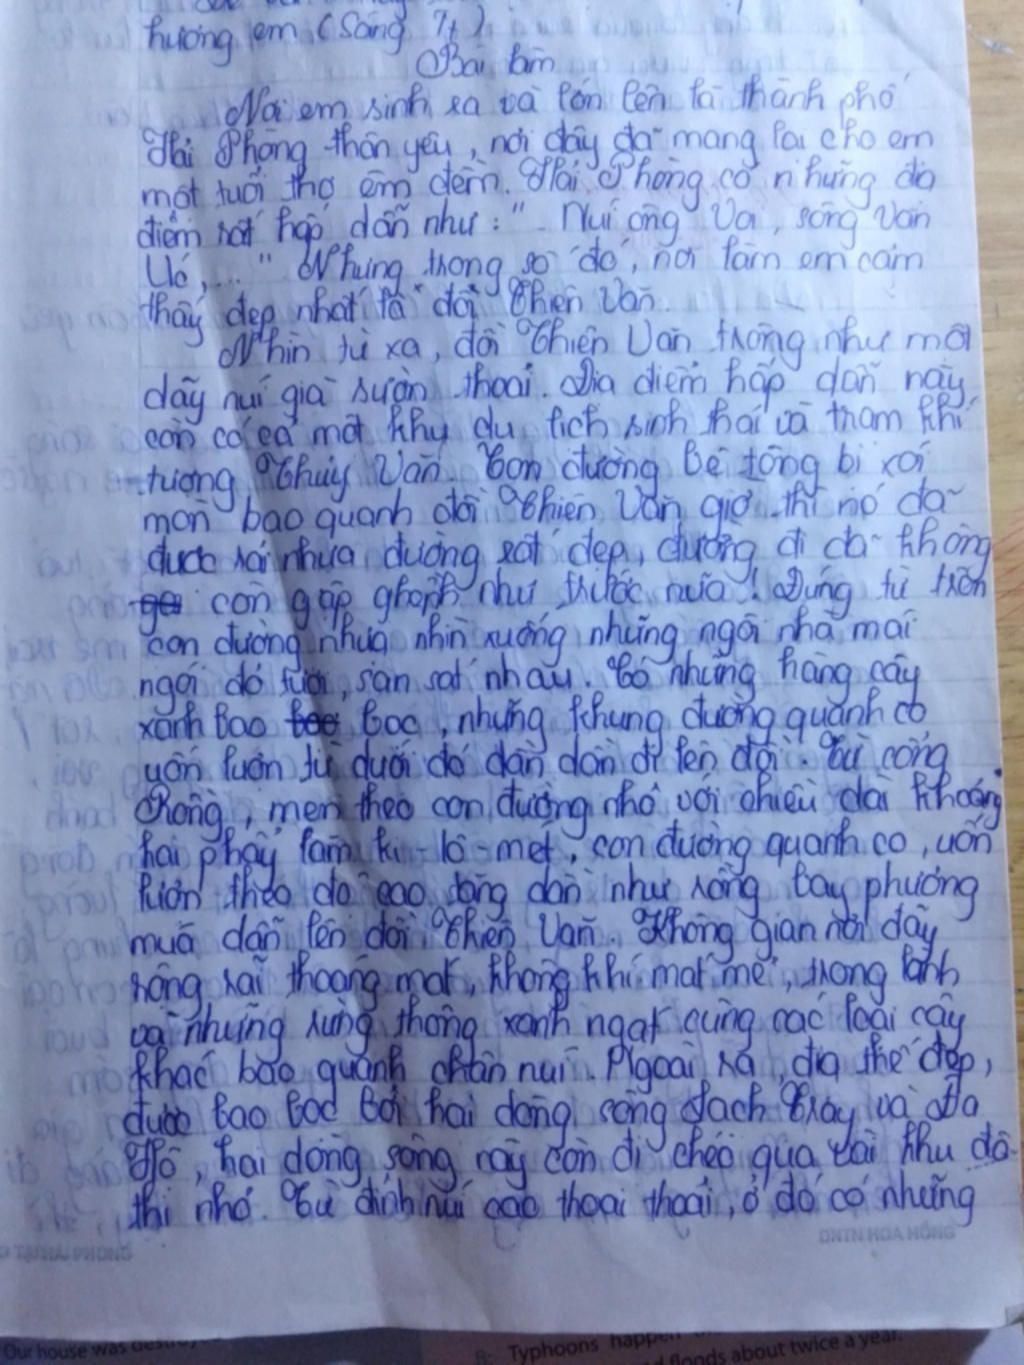 hương em (Sáng 7t)
Bài làm
Nơi em sinh ra và lớn lên là thành phố
Hải Phòng thân yêu, nơi đây đã mang lại cho em
một tuổi thơ êm đềm. Hải Phòng có những địa
điểm rất hấp dẫn như: " Núi ông Voi, sông Văn
Úc,..." Nhưng trong số đó, nơi làm em cảm
thấy đẹp nhất là đồi Thiên Văn.
Nhìn từ xa, đồi Thiên Văn trông như một
dãy núi già sườn thoai. Địa điểm hấp dẫn này
còn có cả một khu du lịch sinh thái và trạm khí
tượng Thủy Văn. Con đường bê tông bị xói
mòn bao quanh đồi Thiên Văn giờ thì nó đã
được rải nhựa đường rất đẹp, đường đi đã không
còn gập ghềnh như trước nữa! Đứng từ trên
con đường nhựa nhìn xuống những ngôi nhà mái
ngói đỏ tươi, san sát nhau. Có những hàng cây
xanh bao bọc, những khung đường quanh co
uốn lượn từ dưới đó dần dần đi lên đồi. Từ cổng
Rồng, men theo con đường nhỏ với chiều dài khoảng
hai phẩy lăm ki-lô-mét, con đường quanh co, uốn
lượn theo độ cao tăng dần như rồng bay phượng
múa dẫn lên đồi Thiên Văn. Không gian nơi đây
rộng rãi thoáng mát, không khí mát mẻ, trong lành
và những rừng thông xanh ngát cùng các loài cây
khác bao quanh chân núi. Ngoài ra, địa thế đẹp,
được bao bọc bởi hai dòng sông Lạch Tray và Đa
Độ, hai dòng sông này còn đi chéo qua vài khu đô
thị nhỏ. Từ đỉnh núi cao thoai thoải, ở đó có những
DNTN HOA HỒNG
Our house was
Typhoons happen
floods about twice a year.